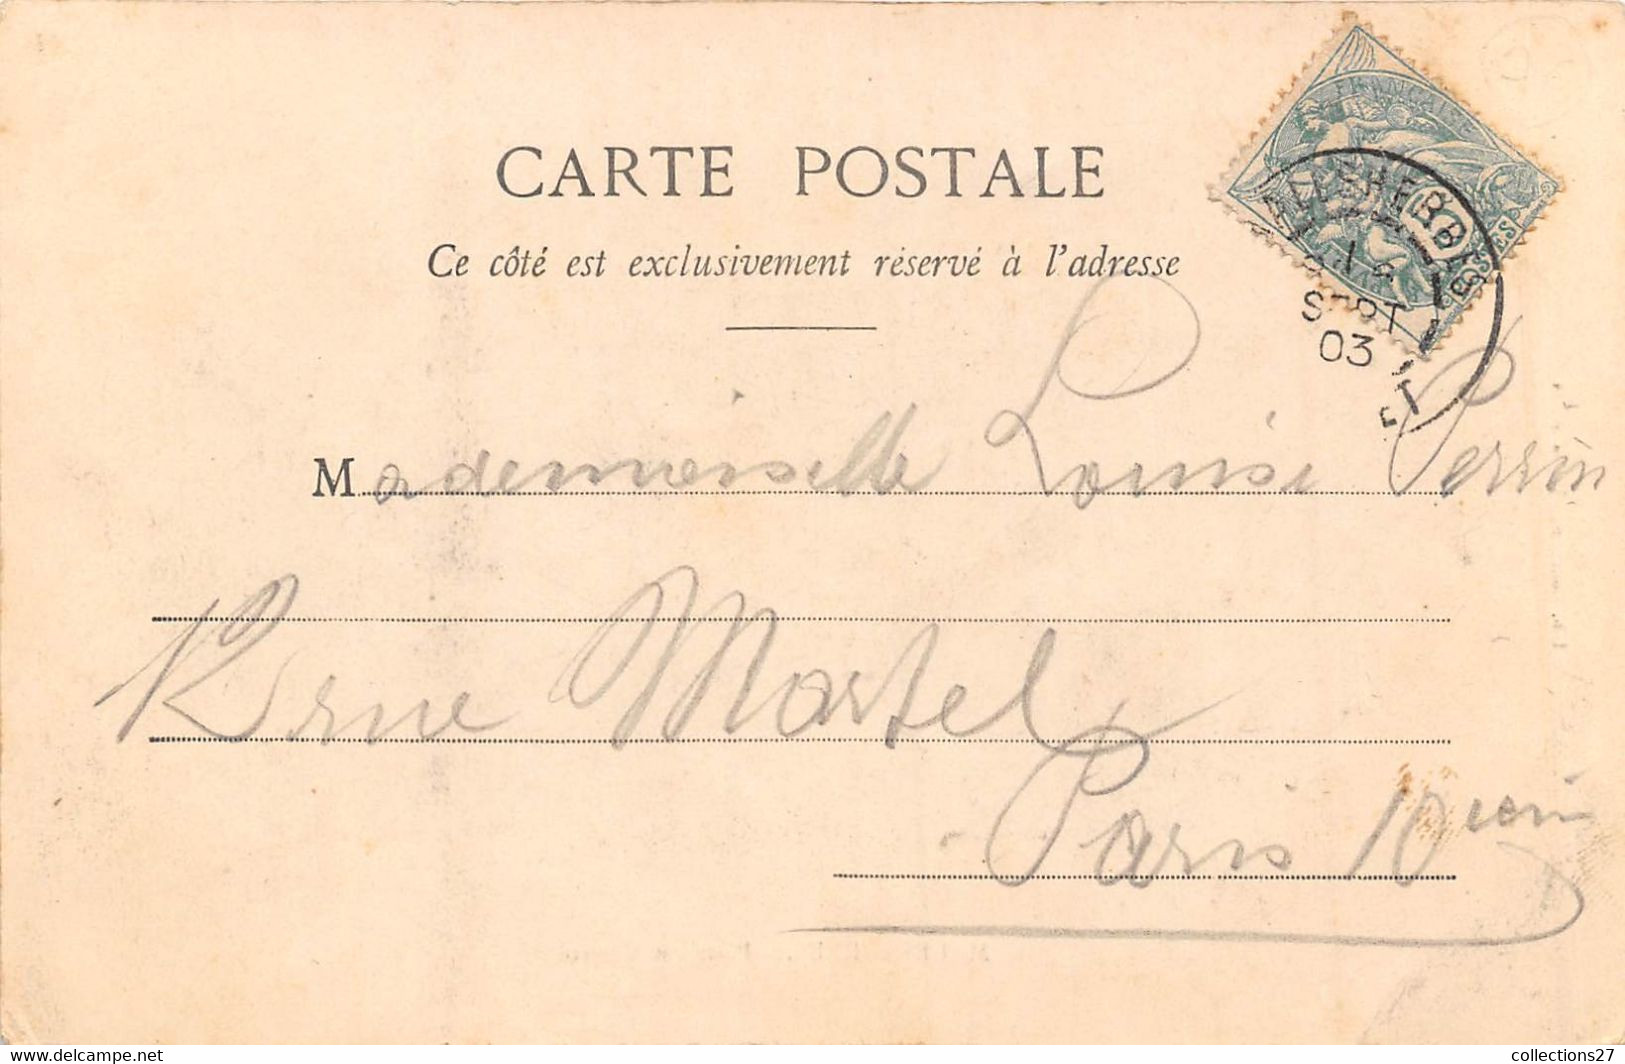 CARTE POSTALE
Ce côté est exclusivement réservé à l'adresse
FRANÇAISE
03
Mademoiselle Louise Perrin
rue Martel
Paris 10ieme
collections27